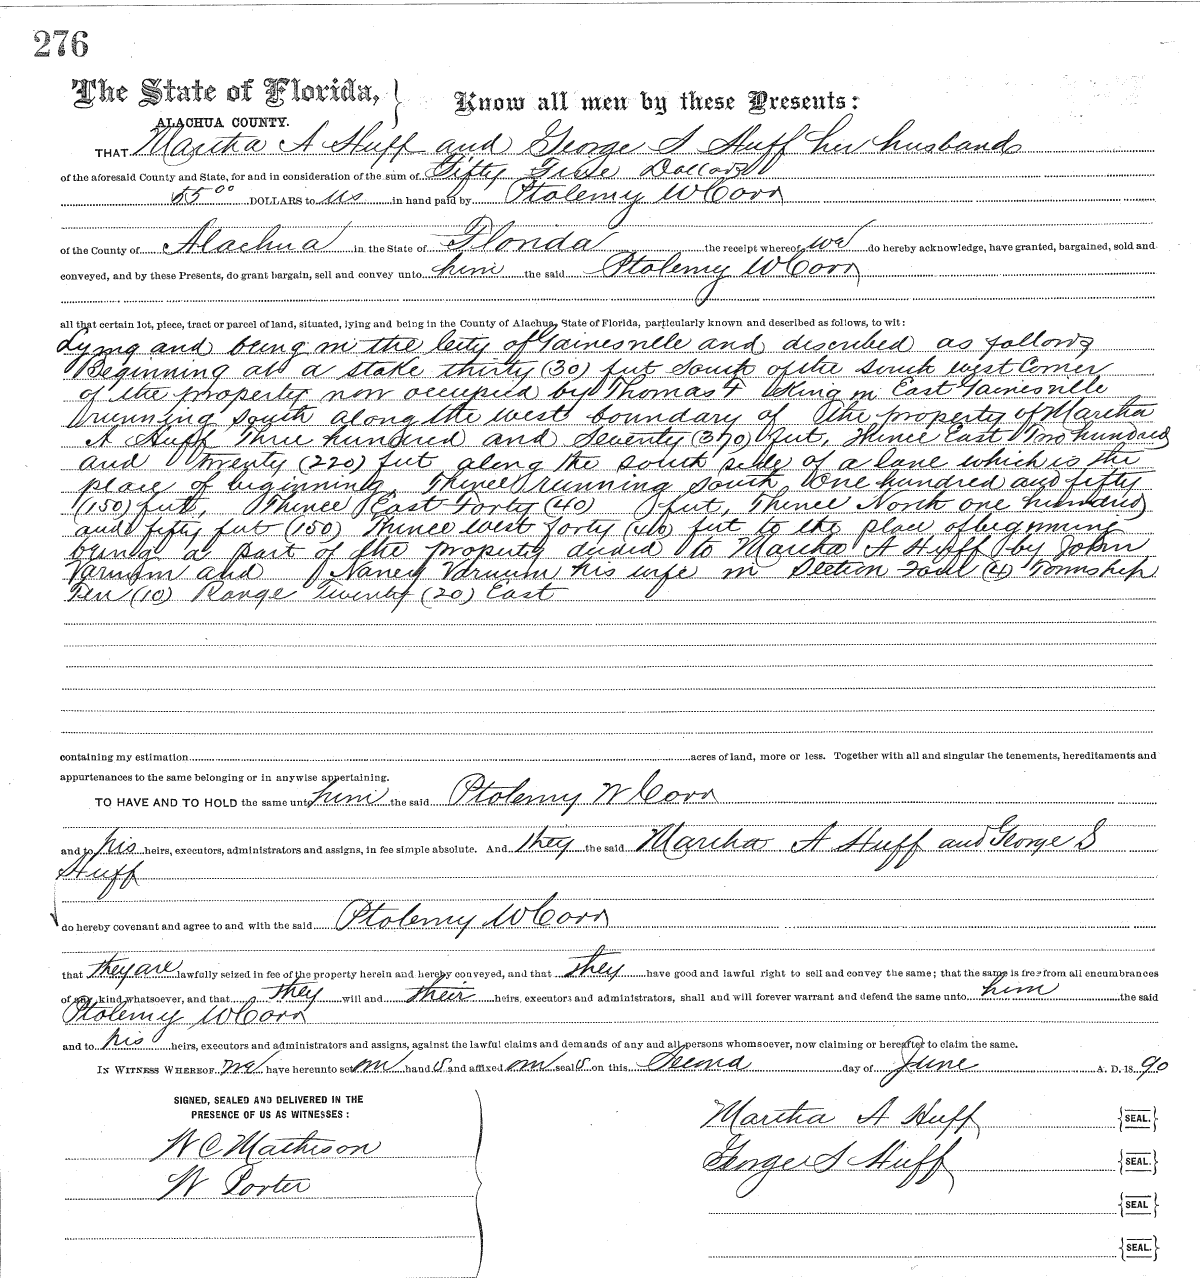 276
The State of Florida, } Know all men by these Presents:
ALACHUA COUNTY.
THAT Martha A Huff and George S Huff her husband
of the aforesaid County and State, for and in consideration of the sum of Fifty Five Dollars
55 00 DOLLARS to us in hand paid by Ptolemy W Corr
of the County of Alachua in the State of Florida the receipt whereof we do hereby acknowledge, have granted, bargained, sold and
conveyed, and by these Presents, do grant bargain, sell and convey unto him the said Ptolemy W Corr
all that certain lot, piece, tract or parcel of land, situated, lying and being in the County of Alachua, State of Florida, particularly known and described as follows, to wit:
Lying and being in the City of Gainesville and discribed as follows
Beginning at a stake thirty (30) feet South of the south west Corner
of the property now occupied by Thomas F King in East Gainesville
running south along the west boundary of the property of Martha
A Huff Three hundred and Seventy (370) feet, Thence East Two hundred
and Twenty (220) feet along the south side of a lane which is the
place of beginning Thence running south One hundred and fifty
(150) feet, Thence East Forty (40) feet, Thence North one hundred
and fifty feet (150) Thence west forty (40) feet to the place of beginning
being a part of the property deeded to Martha A Huff by John
Varnum and Nancy Varnum his wife in Section Four (4) Township
Ten (10) Range Twenty (20) East
containing my estimation acres of land, more or less. Together with all and singular the tenements, hereditaments and
appurtenances to the same belonging or in anywise appertaining.
TO HAVE AND TO HOLD the same unto him the said Ptolemy W Corr
and to his heirs, executors, administrators and assigns, in fee simple absolute. And they the said Martha A Huff and George S
Huff
do hereby covenant and agree to and with the said Ptolemy W Corr
that they are lawfully seized in fee of the property herein and hereby conveyed, and that they have good and lawful right to sell and convey the same; that the same is free from all encumbrances
of any kind whatsoever, and that they will and their heirs, executors and administrators, shall and will forever warrant and defend the same unto him the said
Ptolemy W Corr
and to his heirs, executors and administrators and assigns, against the lawful claims and demands of any and all persons whomsoever, now claiming or hereafter to claim the same.
IN WITNESS WHEREOF we have hereunto set our hand s and affixed our seal s on this Second day of June A. D. 18 90
SIGNED, SEALED AND DELIVERED IN THE
PRESENCE OF US AS WITNESSES:
W C Mathison
W Porter
Martha A Huff {SEAL.}
George S Huff {SEAL.}
{SEAL}
{SEAL.}